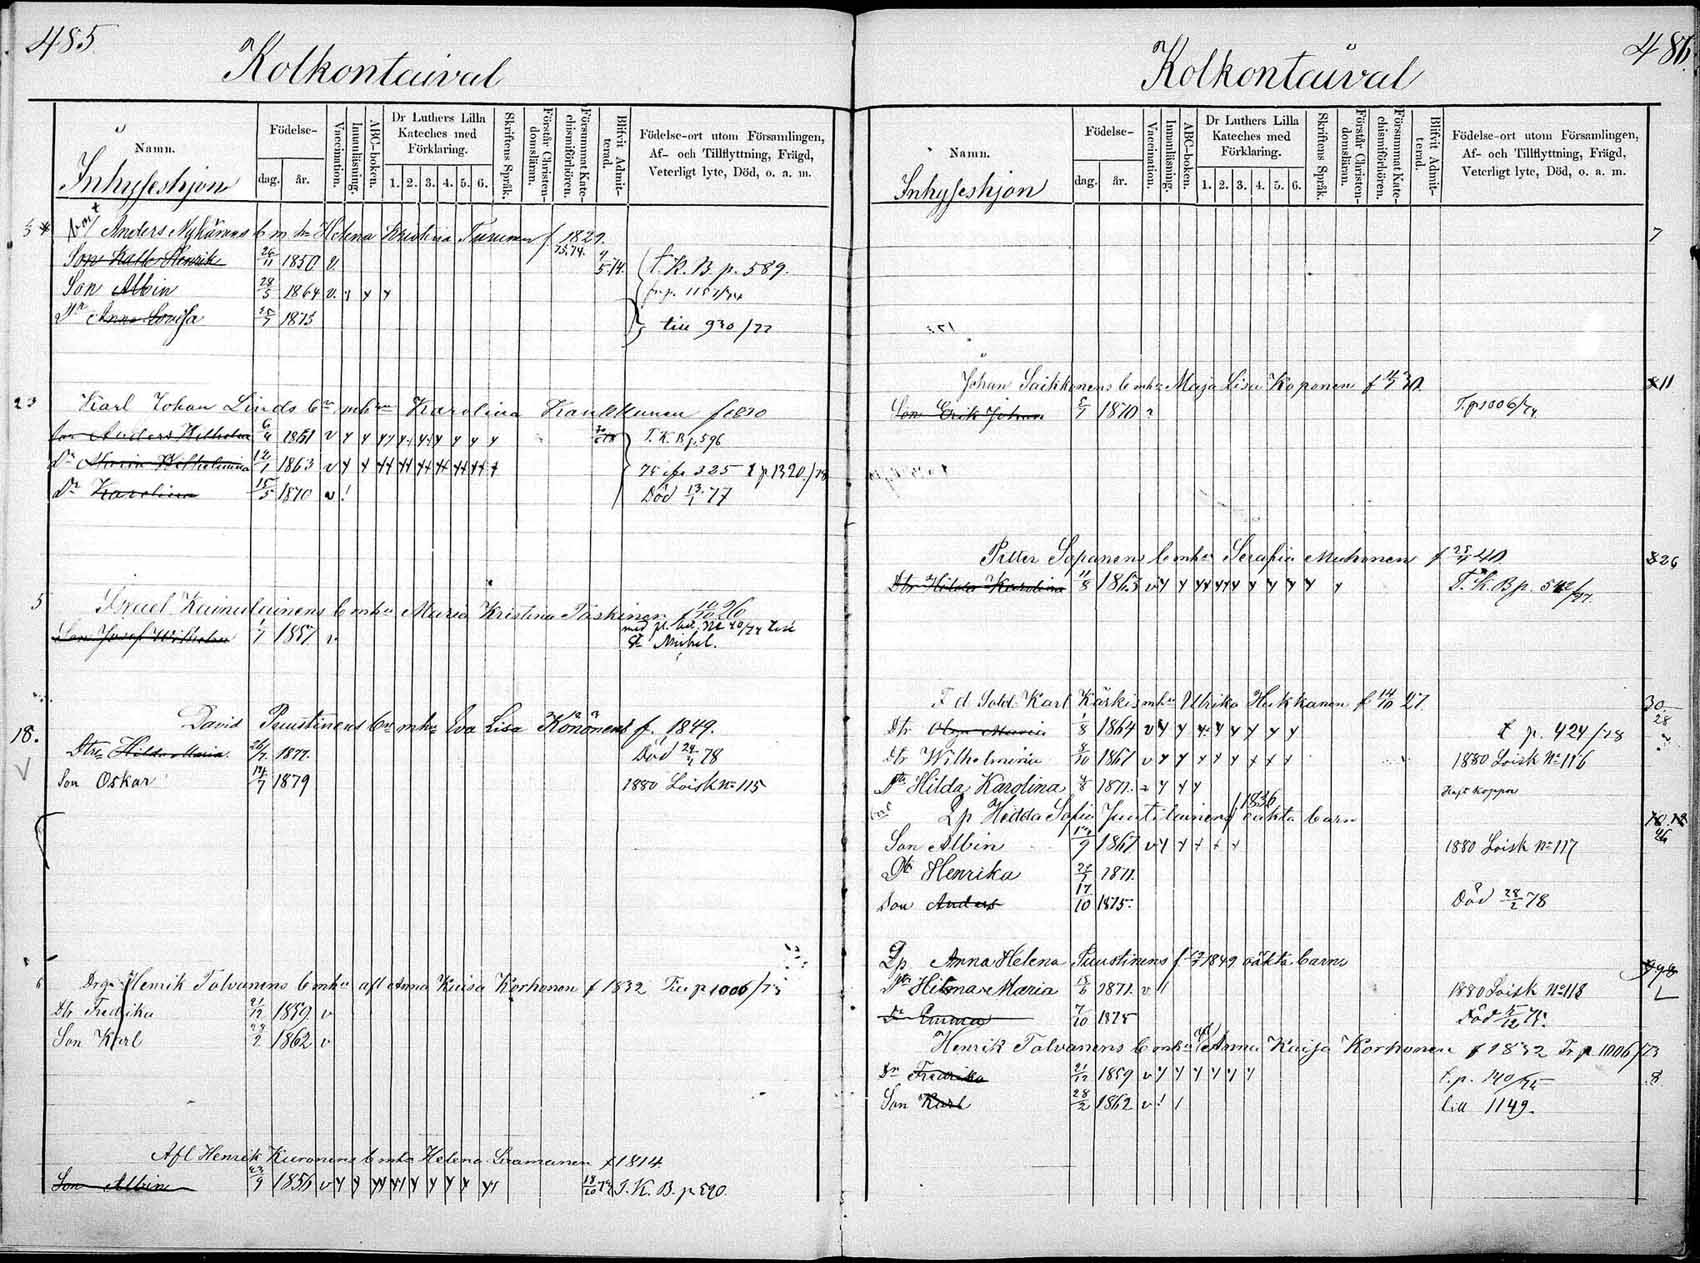 485
Kolkontaival
Namn.
Inhyseshjon
Födelse-
dag.
år.
Vaccination.
Innanläsning.
ABC-boken.
Dr Luthers Lilla
Kateches med
Förklaring.
1. 2. 3. 4. 5. 6.
Skriftens Språk.
Förstår Christen-
domsläran.
Försummat Kate-
chismiförhören.
Blifvit Admit-
terad.
Födelse-ort utom Församlingen,
Af- och Tillflyttning, Frägd,
Veterligt lyte, Död, o. a. m.
Anders Nykänens b m h Helena Kristina Turunen f 1829.
Son Henrik 1850 v. T. K. B. p. 589.
Son Albin 28/5 1864 v.
Dr Anna Lovisa 1873 till 930/77
23 Karl Johan Linds b m hu Karolina f 1830
Son Anders Wilhelm 6/4 1861 v T. K. B p. 596
Dr Maria Wilhelmina 12/1 1863 v p 1320/78
Dr Karolina 15/5 1870 v ! Död 13/1 77
5 Israel Kainulainens b m hu Maria Kristina Päskinen f 26
Son Josef Wilhelm 1/7 1857 v St Michel.
18. David Puustinens b m hu Eva Lisa Könönens f. 1849.
Dtr Hilda Maria 26/7 1877. Död 78
Son Oskar 14/7 1879 1880 Loisk No 115
6 Henrik Tolvanens b m hu afl Anna Kaisa Korhonen f 1832 p 1006/73
Dtr Fredrika 21/12 1859 v
Son Karl 28/2 1862 v
Afl Henrik Kuronens b m hu Helena f 1814
Son Albin 23/9 1856 v T. K. B. p. 590.
486.
Kolkontaival
Namn.
Inhyseshjon
Födelse-
dag.
år.
Vaccination.
Innanläsning.
ABC-boken.
Dr Luthers Lilla
Kateches med
Förklaring.
1. 2. 3. 4. 5. 6.
Skriftens Språk.
Förstår Christen-
domsläran.
Försummat Kate-
chismiförhören.
Blifvit Admit-
terad.
Födelse-ort utom Församlingen,
Af- och Tillflyttning, Frägd,
Veterligt lyte, Död, o. a. m.
7
Johan Saikkonens b m hu Maja Lisa Koponen f 30 11
Son Erik Johan 1870 T. p 1006/74
Petter Sopanens b m hu Serafia Muhonen f 40 26
Dtr Hilda Karolina 11/8 1863 v T. K. B p. 542/77.
F d Sold. Karl Kärki m hu Ulrika Hukkanen f 14/10 27 30
Dtr Maria 1/8 1864 v t p. 424/78
28
Dtr Wilhelmina 8/10 1867 v 1880 Loisk No 116
Dtr Hilda Karolina 1871 Haft Koppor
Qp Hedda Sofia Juutilainen f 1836 oäkta barn
Son Albin 1867 v 1880 Loisk No 117
Dtr Henrika 1871.
Son Anders 17/10 1875. Död 28/2 78
Qp Anna Helena Puustinens f 1849 oäkta barn
Dtr Hilma Maria 1871. v 1880 Loisk No 118
Dr Emma 7/10 1875 Död 75.
Henrik Tolvanens b m hu afl Anna Kaisa Korhonen f 1832 p 1006/73
Dr Fredrika 21/12 1859 v t. p. 140/75 8
Son Karl 28/2 1862 v till 1149.